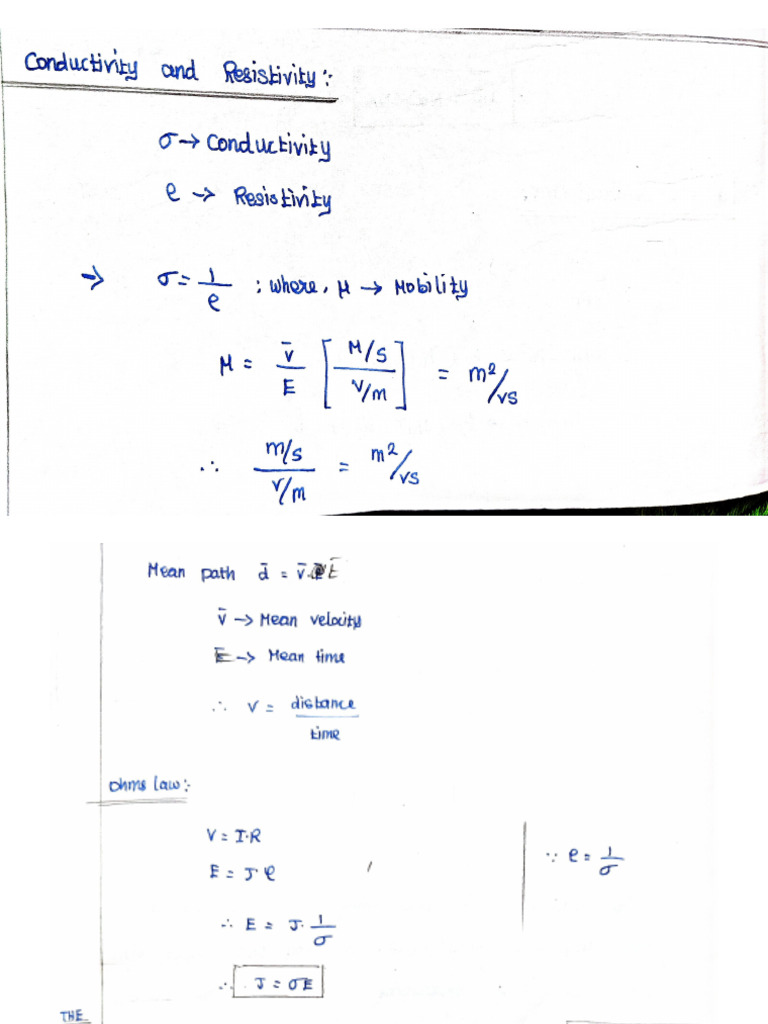 Conductivity and Resistivity:-
σ → Conductivity
ρ → Resistivity
→ σ = 1/ρ ; where, μ → Mobility
μ = v̄/E [M/S / V/m] = m²/VS
∴ m/s / V/m = m²/VS
Mean path d̄ = v̄.t̄
v̄ → Mean velocity
t̄ → Mean time
∴ V = distance/time
Ohms law:-
V = I.R
E = J ρ
∵ ρ = 1/σ
∴ E = J. 1/σ
∴ J = σE
THE